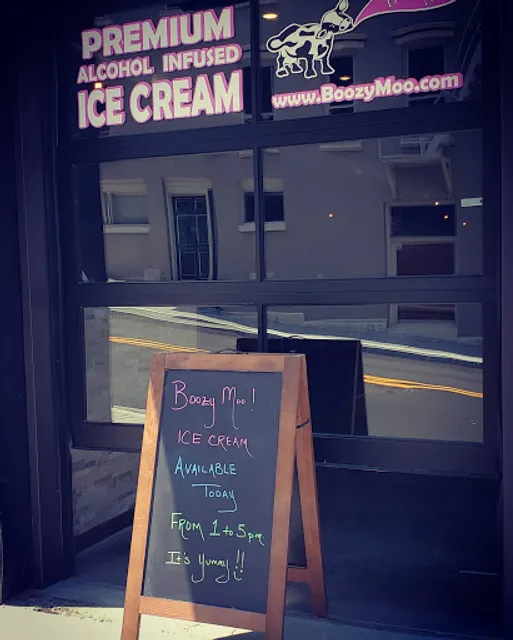 PREMIUM
ALCOHOL INFUSED
ICE CREAM
www.BoozyMoo.com
Boozy Moo!
ICE CREAM
AVAILABLE
TODAY
FROM 1 to 5 pm.
It's Yummy!!